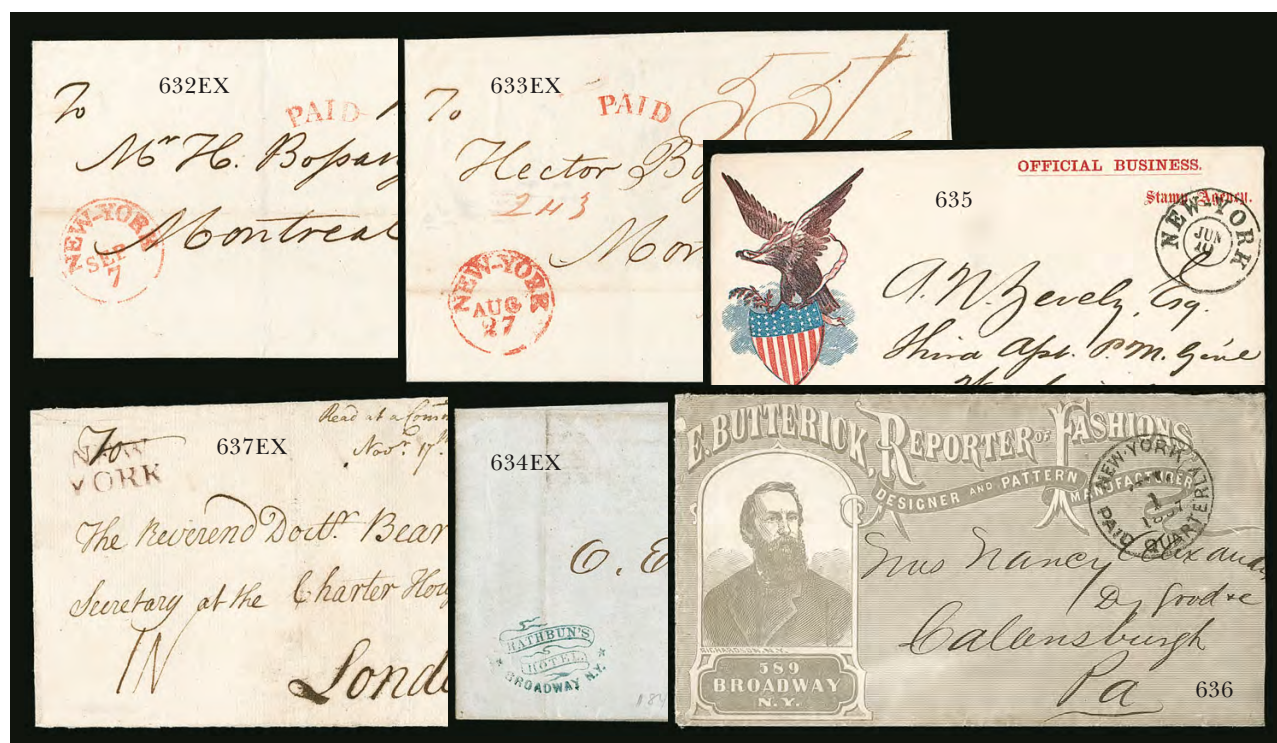 632EX
To
PAID
Mr. H. Bossan
NEW-YORK
SEP
7
Montreal
633EX
To
PAID
55
Hector Bo
243
NEW-YORK
AUG
27
Mon
635
OFFICIAL BUSINESS.
Stamp Agency.
NEW-YORK
JUN
10
A. N. Zevely, Esq.
Third Asst. P.M. Gen'l
637EX
Read at a Comm
Novr. 17th
To
NEW
YORK
The Reverend Doctr. Bear
Secretary at the Charter Hou
IN
Londo
634EX
O. E
RATHBUN'S
HOTEL.
BROADWAY N.Y.
184
E. BUTTERICK, REPORTER OF FASHIONS
DESIGNER AND PATTERN MANUFACTURER
NEW-YORK
1
PAID QUARTERLY
RICHARDSON. N.Y.
589
BROADWAY
N.Y.
Mrs Nancy Alexander
Dry Goods &c
Callensburgh
Pa
636